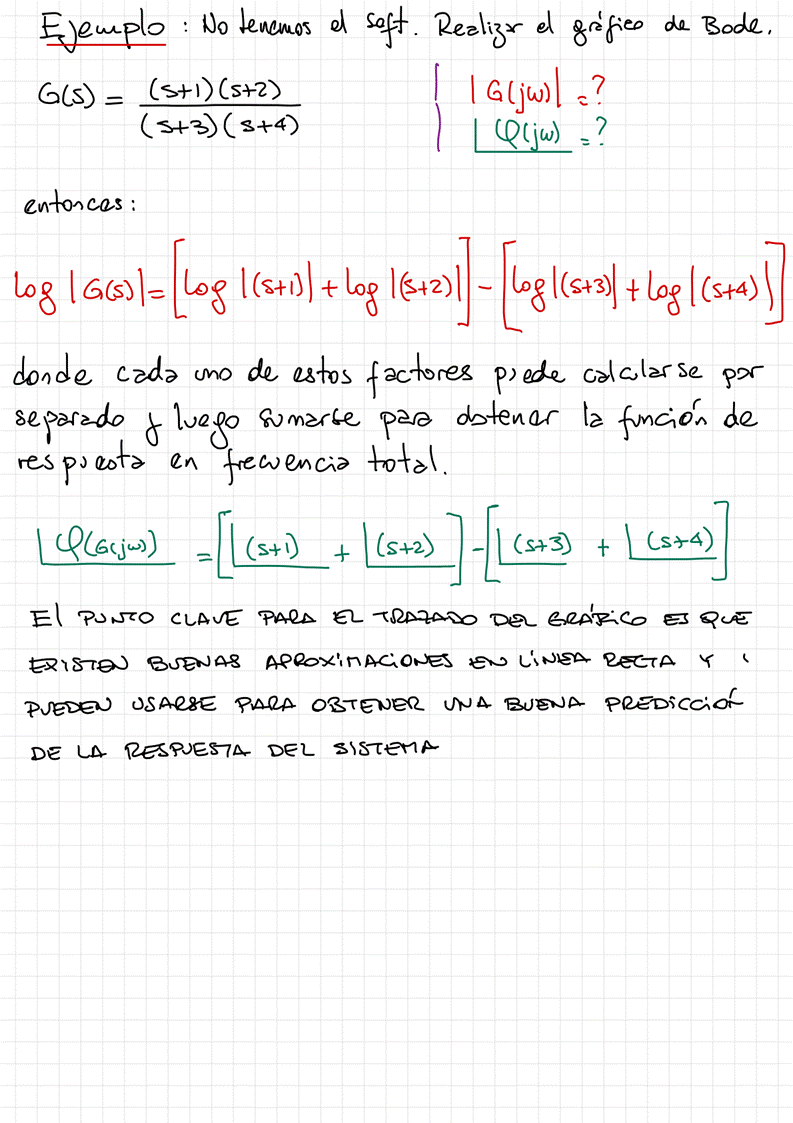 Ejemplo : No tenemos el soft. Realizar el gráfico de Bode.
G(s) = (s+1)(s+2) / (s+3)(s+4)
|G(jw)| = ?
φ(jw) = ?
entonces:
log |G(s)| = [log |(s+1)| + log |(s+2)|] - [log |(s+3)| + log |(s+4)|]
donde cada uno de estos factores puede calcularse por
separado y luego sumarse para obtener la función de
respuesta en frecuencia total.
φ(G(jw)) = [(s+1) + (s+2)] - [(s+3) + (s+4)]
El PUNTO CLAVE PARA EL TRAZADO DEL GRÁFICO ES QUE
EXISTEN BUENAS APROXIMACIONES EN LÍNEA RECTA Y
PUEDEN USARSE PARA OBTENER UNA BUENA PREDICCIÓN
DE LA RESPUESTA DEL SISTEMA